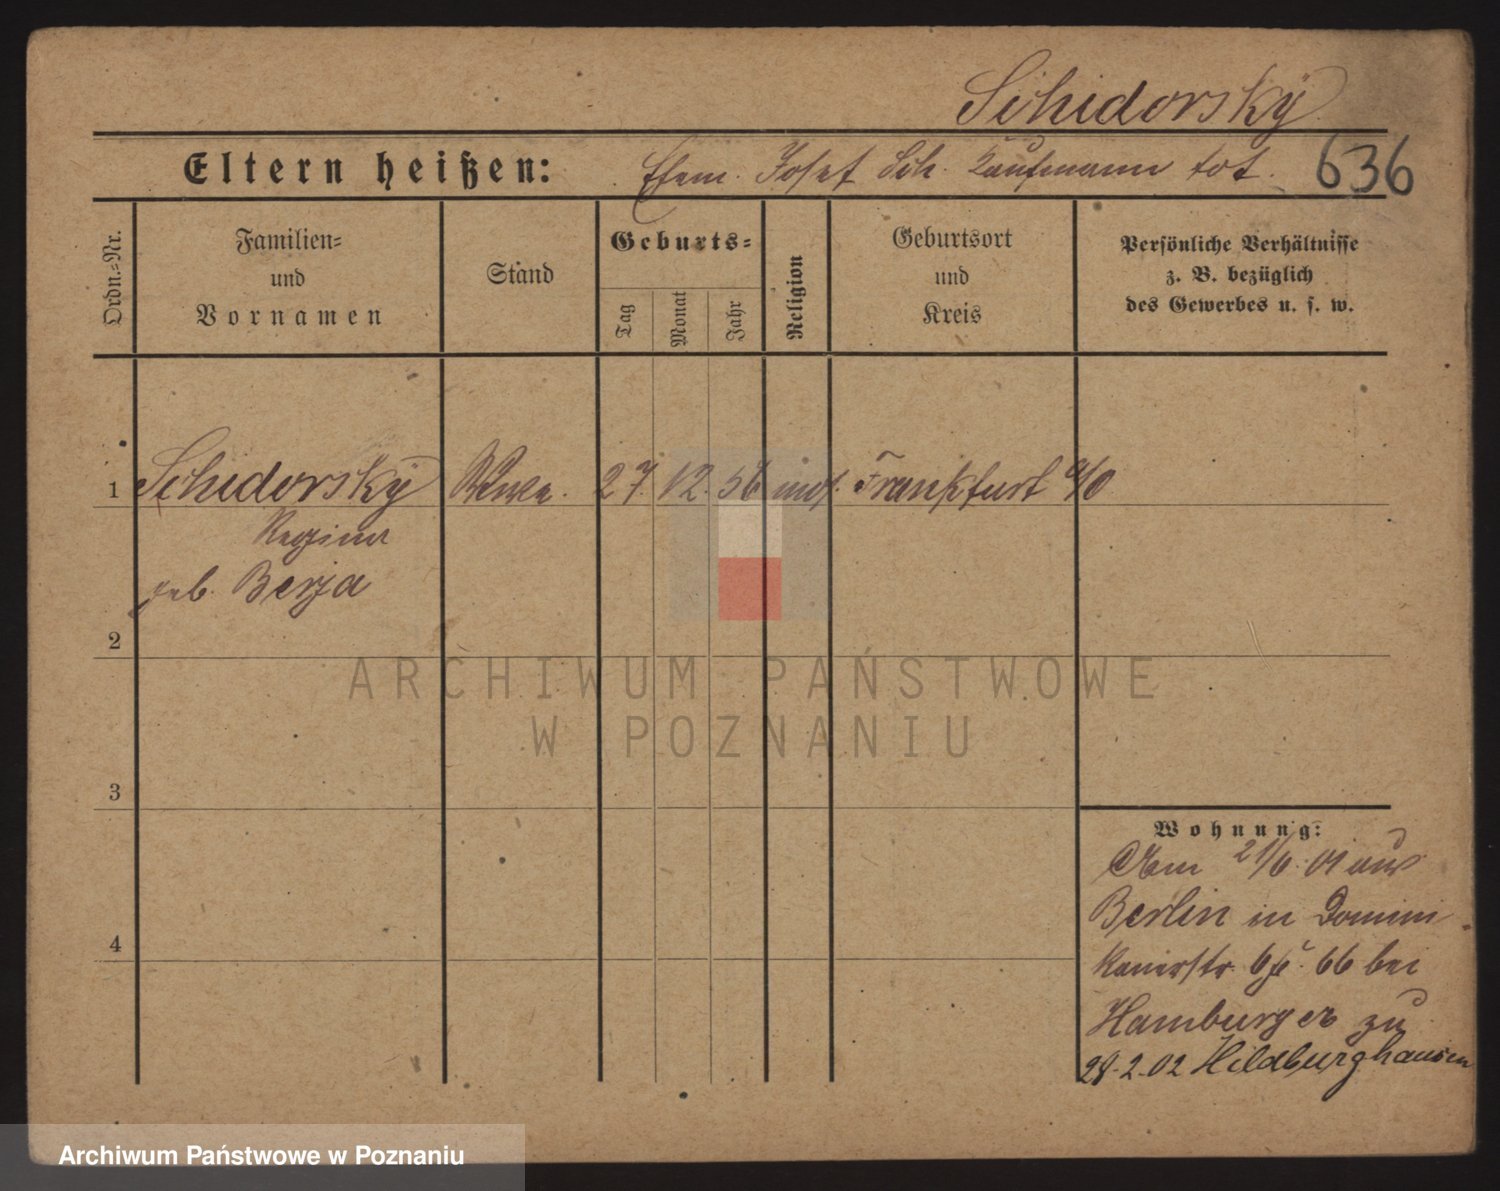 Schidorsky
Eltern heißen: Ehem. Josef Sch. Kaufmann tot. 636
Ordn.-Nr.
Familien-
und
Vornamen
Stand
Geburts-
Tag
Monat
Jahr
Religion
Geburtsort
und
Kreis
Persönliche Verhältnisse
z. B. bezüglich
des Gewerbes u. s. w.
1 Schidorsky Wwe. 27. 12. 56 mos. Frankfurt a/O
Regina
geb. Berja
2
3
4
Wohnung:
Am 21/6. 01 aus
Berlin in Domini-
kanerstr. 66 bei
Hamburger zu
28.2.02 Hildburghausen
ARCHIWUM PAŃSTWOWE
W POZNANIU
Archiwum Państwowe w Poznaniu